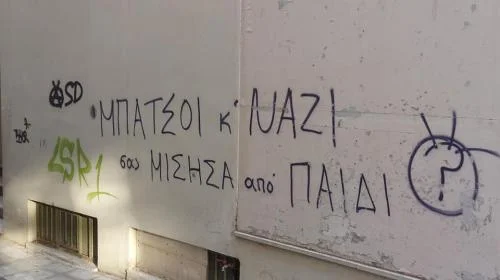 ASD
ΜΠΑΤΣΟΙ κ' ΝΑΖΙ
LSR1
σας ΜΙΣΗΣΑ από ΠΑΙΔΙ
?